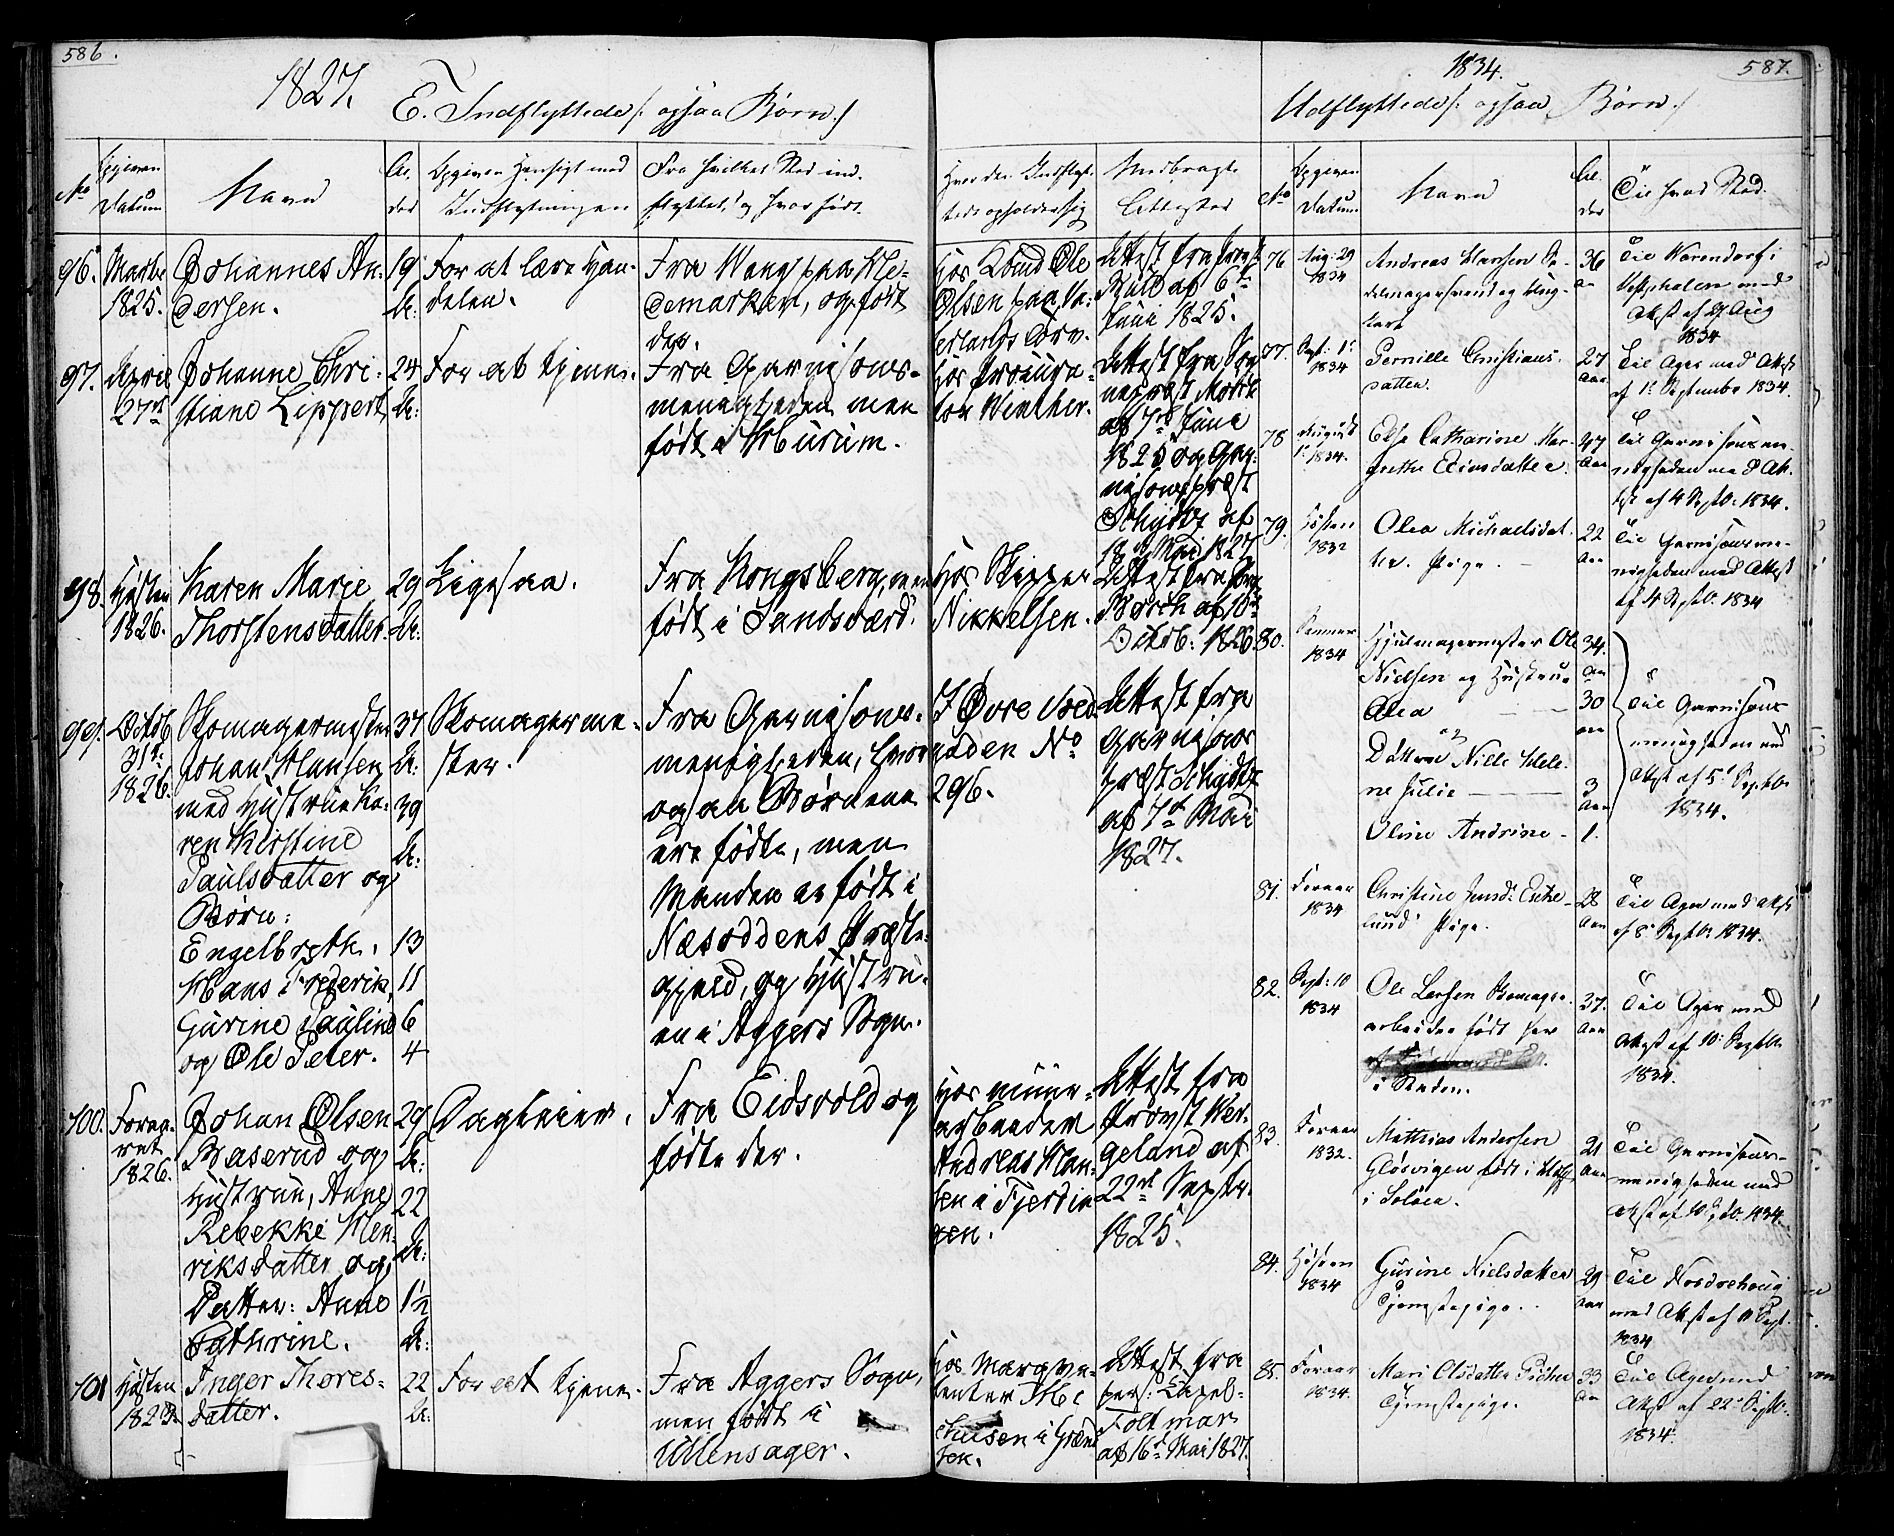 586.
1827.
E. Indflyttede /: ogsaa Børn :/
No
Opgiven
Datum
Navn
Al-
der
Opgiven Hensigt med
Indflytningen
Fra hvilket Sted ind-
flyttet, og hvor født.
Hvor den Indflyt-
tede opholder sig
Medbragte
Attester
96.
1825.
Johannes An-
dersen.
19
A:
For at lære Han-
delen.
Fra Wang paa He-
demarken, og født
der.
Hos Olsen paa Va-
terlands Torv.
Attest fra
af 6te
Juni 1825.
97.
April
27de
Johanne Chri-
stiane Lippert
24
A:
For at tjene.
Fra Garnisons-
menigheden men
født i
Hos Procura-
tor Winther.
Attest fra Sog-
nepræst
af 7de Juni
1825 og Gar-
nisonspræst
Schydtz af
18de Mai 1827
98.
Høsten
1826.
Karen Marie
Thorstensdatter
29
A:
Ligesaa.
Fra Kongsberg, men
født i Sandsværd.
Hos Skipper
Nikkelsen.
Attest fra
af 10de
Octob: 1826
99.
Octob
31te
1826.
Skomagermester
Johan Hansen
med Hustrue Ka-
ren Kirstine
Paulsdatter og
Børn:
Engelbreth,
Hans Frederik,
Gurine Pauline
og Ole Peter.
37
A:
39
A:
13
11
6
4
Skomagerme-
ster.
Fra Garnisons-
menigheden, hvor
ogsaa Børnene
ere fødte, men
Manden er født i
Næsoddens Præste-
gjeld, og Hustru-
en i Aggers Sogn.
I Øvre Vold-
gaden No
296.
Attest fra
Garnisons
præst Schydtz
af 7de Mai
1827.
100.
Foraa-
ret
1826.
Johan Olsen
Baserud og
Hustrue, Anne
Rebekke Hen-
riksdatter og
Datter: Anne
Cathrine.
29
A:
22
A:
1½
A:
Dagleier.
Fra Eidsvold og
fødte der.
Hos Muur-
arbeider
Andreas Han-
sen i Fjerdin-
gen.
Attest fra
Provst Wer-
geland af
22de Septr.
1825.
101
Høsten
1823.
Inger Thores-
datter.
22
A:
For at tjene.
Fra Aggers Sogn,
men født i
Ullensager.
Hos Marqve-
tenter Mi
chelsen i Grænd-
sen.
Attest fra
pers: Capel-
Foltmar
af 16de Mai 1827.
587.
1834.
Udflyttede /: ogsaa Børn :/
No
Opgiven
Datum
Navn
Al-
der
Til hvad Sted.
76
Aug: 29
1834
Andreas Hansen Sa-
delmagersvend og Ung-
karl
36
Til Warendorf i
Vestphalen med
Attest af 29 Aug
1834
77.
Sept: 1ste
1834
Pernille Christians-
datter.
27
Aar
Til Ager med Attest
af 1ste September 1834.
78
August
1834.
Else Catharine Mar-
grethe
47
Aar
Til Garnisonsme-
nigheden med At-
test af 4 Septbr: 1834.
79.
Høsten
1832
Olea Michaelsdat-
ter. Pige.
22
Aar
Til Garnisonsme-
nigheden med Attest
af 4 Septbr. 1834
80.
Sommer
1834
Hjulmagermester Ole
Nielsen og Hustrue
Olea
og
Døttre Nille Hele-
ne Julie
Oline Andrine
34.
Aar
30
3
Aar
1.
Til Garnisons
menigheden med
Attest af 5te Septbr
1834.
81.
Foraar
1834
Christine
lund Pige.
28
Aar
Til Ager med Attest
af 8 Septbr 1834.
82.
Sept: 10
1834
Ole Larsen
arbeider født her
i Staden.
37.
Aar
Til Ager med
Attest af 10 Septbr
1834.
83.
Foraar
1832.
Matthias Andersen
Gløsvigen født i Hof
i Soløer.
21
Aar
Til Garnisons-
menigheden med
Attest af 10 Septbr. 1834.
84.
Høsten
1834
Gurine Nielsdatter
Tjenestepige.
29
Aar
Til Norderhoug
med Attest af Sept.
1834
85.
Foraar
1834.
Mari Olsdatter
Tjenestepige.
33
Aar
Til Ager med
Attest af 22 Septbr.
1834.